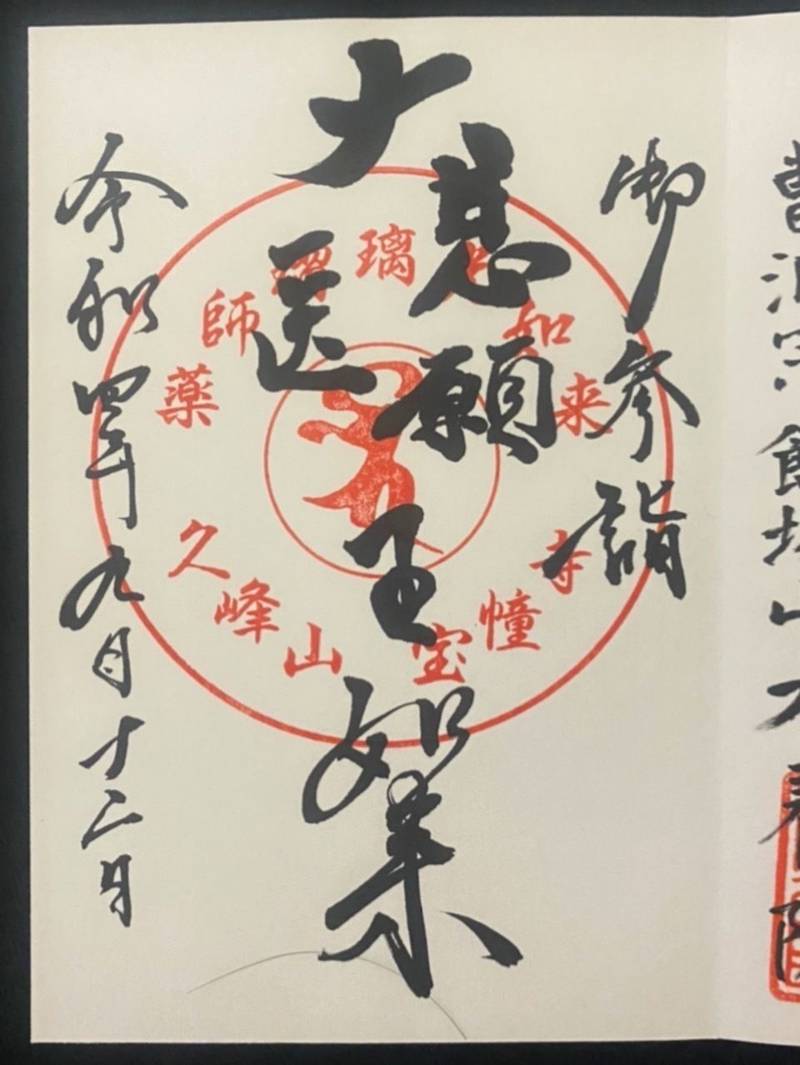 曹洞宗
御参詣
慈願王如来
大医
令和四年九月十二日
薬師瑠璃光如来
久峰山宝幢寺